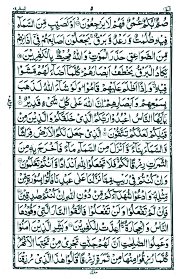 صُمٌّۢ بُكْمٌ عُمْيٌ فَهُمْ لَا يَرْجِعُوْنَ اَوْ كَصَيِّبٍ مِّنَ
السَّمَآءِ فِيْهِ ظُلُمٰتٌ وَّرَعْدٌ وَّبَرْقٌ يَجْعَلُوْنَ اَصَابِعَهُمْ فِيْٓ اٰذَانِهِمْ
مِّنَ الصَّوَاعِقِ حَذَرَ الْمَوْتِ وَاللّٰهُ مُحِيْطٌۢ بِالْكٰفِرِيْنَ
يَكَادُ الْبَرْقُ يَخْطَفُ اَبْصَارَهُمْ كُلَّمَآ اَضَآءَ لَهُمْ مَّشَوْا
فِيْهِ وَاِذَآ اَظْلَمَ عَلَيْهِمْ قَامُوْا وَلَوْ شَآءَ اللّٰهُ لَذَهَبَ
بِسَمْعِهِمْ وَاَبْصَارِهِمْ اِنَّ اللّٰهَ عَلٰى كُلِّ شَيْءٍ قَدِيْرٌ
يٰٓاَيُّهَا النَّاسُ اعْبُدُوْا رَبَّكُمُ الَّذِيْ خَلَقَكُمْ وَالَّذِيْنَ
مِنْ قَبْلِكُمْ لَعَلَّكُمْ تَتَّقُوْنَ الَّذِيْ جَعَلَ لَكُمُ الْاَرْضَ فِرَاشًا
وَّالسَّمَآءَ بِنَآءً وَّاَنْزَلَ مِنَ السَّمَآءِ مَآءً فَاَخْرَجَ بِهٖ مِنَ
الثَّمَرٰتِ رِزْقًا لَّكُمْ فَلَا تَجْعَلُوْا لِلّٰهِ اَنْدَادًا وَّاَنْتُمْ تَعْلَمُوْنَ
وَاِنْ كُنْتُمْ فِيْ رَيْبٍ مِّمَّا نَزَّلْنَا عَلٰى عَبْدِنَا فَاْتُوْا بِسُوْرَةٍ
مِّنْ مِّثْلِهٖ وَادْعُوْا شُهَدَآءَكُمْ مِّنْ دُوْنِ اللّٰهِ اِنْ كُنْتُمْ صٰدِقِيْنَ
فَاِنْ لَّمْ تَفْعَلُوْا وَلَنْ تَفْعَلُوْا فَاتَّقُوا النَّارَ الَّتِيْ وَقُوْدُهَا
النَّاسُ وَالْحِجَارَةُ اُعِدَّتْ لِلْكٰفِرِيْنَ وَبَشِّرِ الَّذِيْنَ اٰمَنُوْا
وَعَمِلُوا الصّٰلِحٰتِ اَنَّ لَهُمْ جَنّٰتٍ تَجْرِيْ مِنْ تَحْتِهَا الْاَنْهٰرُ
كُلَّمَا رُزِقُوْا مِنْهَا مِنْ ثَمَرَةٍ رِّزْقًا قَالُوْا هٰذَا الَّذِيْ رُزِقْنَا